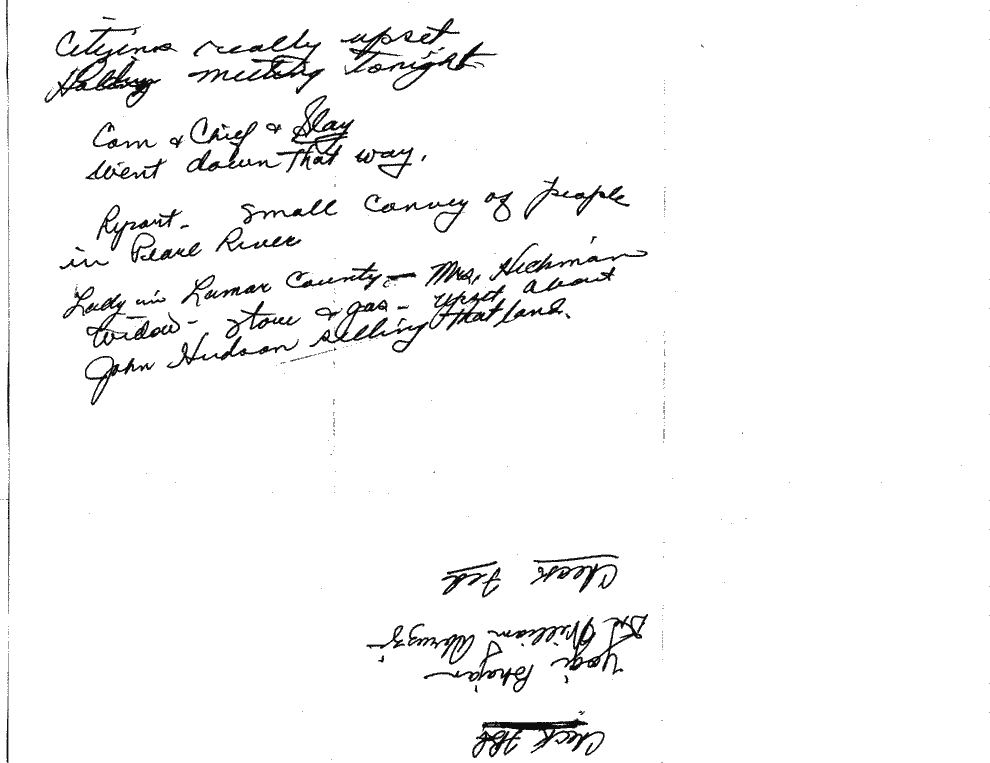 Citizens really upset
Holding meeting tonight
Com & Chief & Slay
went down that way.
Report - Small Convey of people
in Pearl River
Lady in Lamar County - Mrs. Hickman
widow - store & gas - upset about
John Hudson selling that land.
Check FBI
Yogi Bhajan
Dr. William Abruzzi
Check Fed